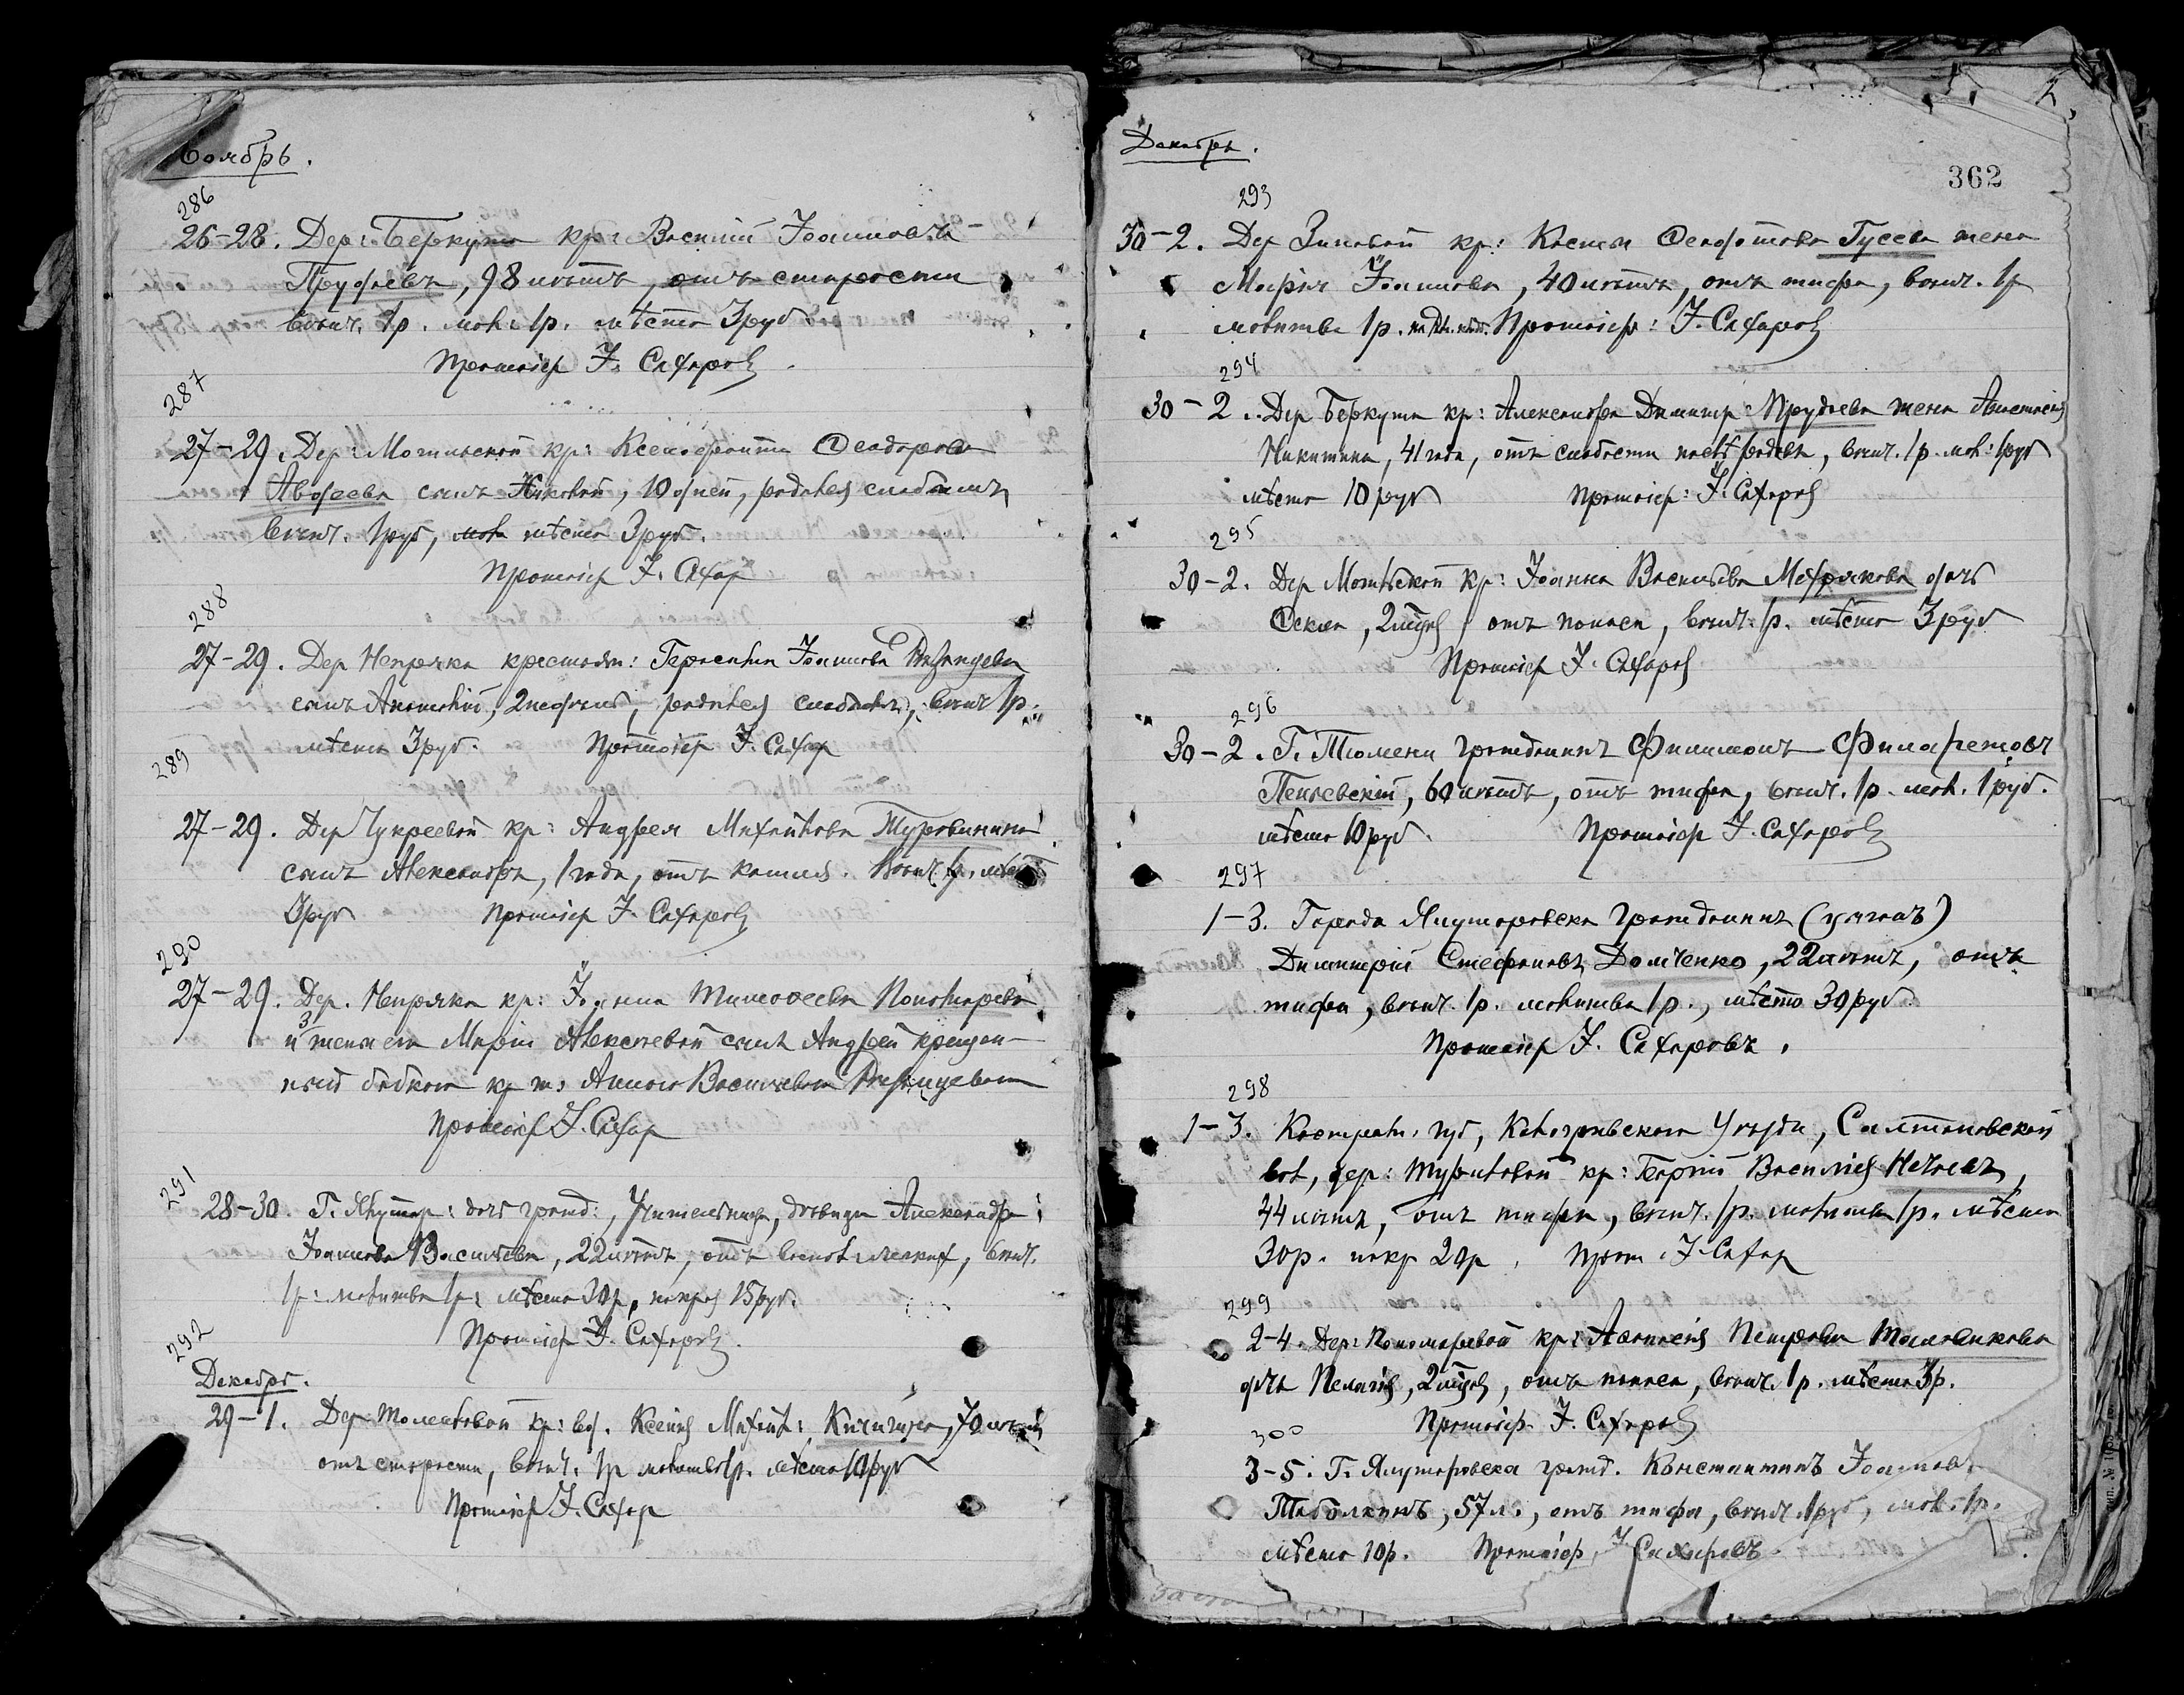 Ноябрь.
286
26-28. Дер: Беркута кр: Василий Іоанновъ
Прудаевъ, 98 лѣтъ, отъ старости
вѣнч. 1р. мол: 1р. мѣсто 3руб
Протоіер І. Сахаровъ
287
27-29. Дер: Мотыльской кр: Ксенофонта Ѳеодорова
Авдеева сынъ Николай, 10 дней, родился слабымъ
вѣнч. 1руб, мѣсто 3руб.
Протоіер І. Сахар
288
27-29. Дер Непряка крестьян: Герасима Іоаннова
сынъ Анатолій, 2 недѣль, родился слабымъ, вѣнч 1р.
мѣсто 3руб. Протоіер І. Сахар
289
27-29. Дер Чукреевой кр: Андрея Михайлова Туровинина
сынъ Александръ, 1 года, отъ кашля. Вѣнч. 1р. мѣсто
3руб Протоіер І. Сахаровъ
290
27-29. Дер. Непряка кр: Іоанна Тимоѳеева Пономарева
и жены его Маріи Алексѣевой сынъ Андрей крещен-
ный бабкою кр ж: Анною Васильевою
Протоіер І. Сахар
291
28-30. Г. Ялутор: дочь гражд:, Учительница, дѣвица Александра
Іоаннова Васильева, 22 лѣтъ, отъ воспал. легких, вѣнч.
1р: молитва 1р: мѣсто 30р, покров 15руб.
Протоіер І. Сахаровъ
292
Декабрь.
29-1. Дер. Томиловой кр: вд. Ксенія Михайл: Кичигина, 70 лѣтъ
отъ старости, вѣнч. 1р молитва 1р. мѣсто 10руб
Протоіер І. Сахар
Декабрь.
362
293
30-2. Дер Зиновой кр: Косьмы Ѳеофотова Гусева жена
Марія Іоаннова, 40 лѣтъ, отъ тифа, вѣнч. 1р
молитва 1р. Протоіер: І. Сахаровъ
294
30-2. Дер Беркута кр: Александра Димитр: Прудаева жена Анастасія
Никитина, 41 года, отъ слабости послѣ родовъ, вѣнч. 1р. мол: 1руб
мѣсто 10руб Протоіер: І. Сахаровъ
295
30-2. Дер Мотыльской кр: Іоанна Васильева Мехрякова дочь
Ѳекла, 2 мѣсяц отъ поноса, вѣнч: 1р. мѣсто 3руб
Протоіер І. Сахаровъ
296
30-2. Г. Тюмени гражданинъ Филимонъ Филаретовъ
Пенлевскій, 60 лѣтъ, отъ тифа, вѣнч. 1р. мол. 1руб.
мѣсто 10руб. Протоіер І. Сахаровъ
297
1-3. Города Ялуторовска гражданинъ
Димитрій Стефановъ Домченко, 22 лѣтъ, отъ
тифа, вѣнч. 1р. молитва 1р., мѣсто 30руб.
Протоіер І. Сахаровъ.
298
1-3. Костромск. губ, Кологривскаго Уѣзда, Салтановской
вол, дер: Турыловой кр: Георгій Василіев Нечаевъ,
44 лѣтъ, отъ тифа, вѣнч. 1р. молитва 1р. мѣсто
30р. покр 20р, Прот. І. Сахар
299
2-4. Дер: Пономаревой кр: Аѳанасія Петрова Толовикова
дочь Пелагія, 2 мѣсяц, отъ поноса, вѣнч. 1р. мѣсто 3р.
Протоіер. І. Сахаровъ
300
3-5. Г. Ялуторовска гражд. Константинъ Іоаннов
Таболкинъ, 57 л., отъ тифа, вѣнч. 1руб, мол. 1р.
мѣсто 10р. Протоіер. І. Сахаровъ